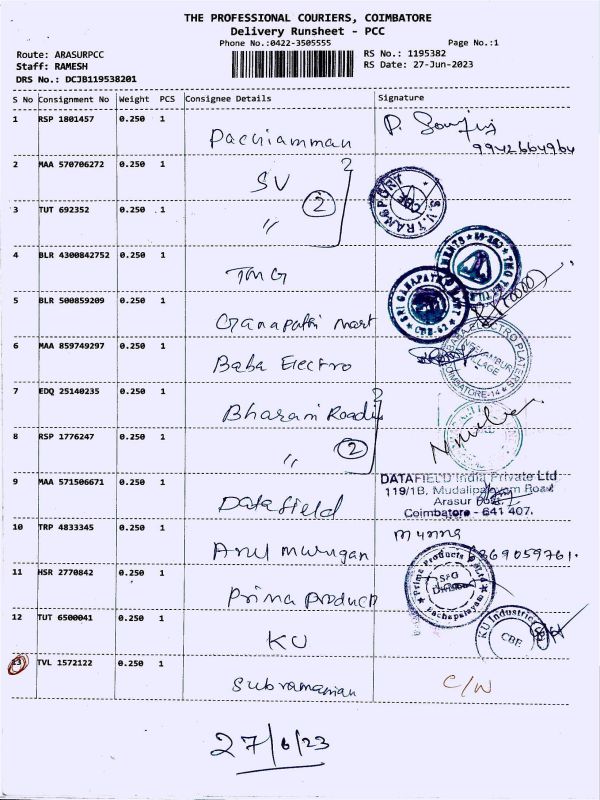 THE PROFESSIONAL COURIERS, COIMBATORE
Delivery Runsheet - PCC
Phone No.:0422-3505555 Page No.:1
Route: ARASURPCC RS No.: 1195382
Staff: RAMESH RS Date: 27-Jun-2023
DRS No.: DCJB119538201
S No Consignment No Weight PCS Consignee Details Signature
1 RSP 1801457 0.250 1 Pachiamman 9942664964
2 MAA 570706272 0.250 1 SV 2 S.V. TRANSPORT CBE
3 TUT 692352 0.250 1 〃
4 BLR 4300842752 0.250 1 TMG
5 BLR 500859209 0.250 1 Ganapathi mart SRI GANAPATHI MART
6 MAA 859749297 0.250 1 Baba Electro BABA ELECTRO PLATERS COIMBATORE-14
7 EDQ 25140235 0.250 1 Bharani Roadis 2
8 RSP 1776247 0.250 1 〃
9 MAA 571506671 0.250 1 Datafield
DATAFIELD India Private Ltd
119/1B, Mudalipalayam Road
Arasur Post,
Coimbatore - 641 407.
10 TRP 4833345 0.250 1 Arul murugan
11 HSR 2770842 0.250 1 Prima product Prima Products Pachapalayam
12 TUT 6500041 0.250 1 KU KU Industries CBE
13 TVL 1572122 0.250 1 Subramanian C/N
27/6/23